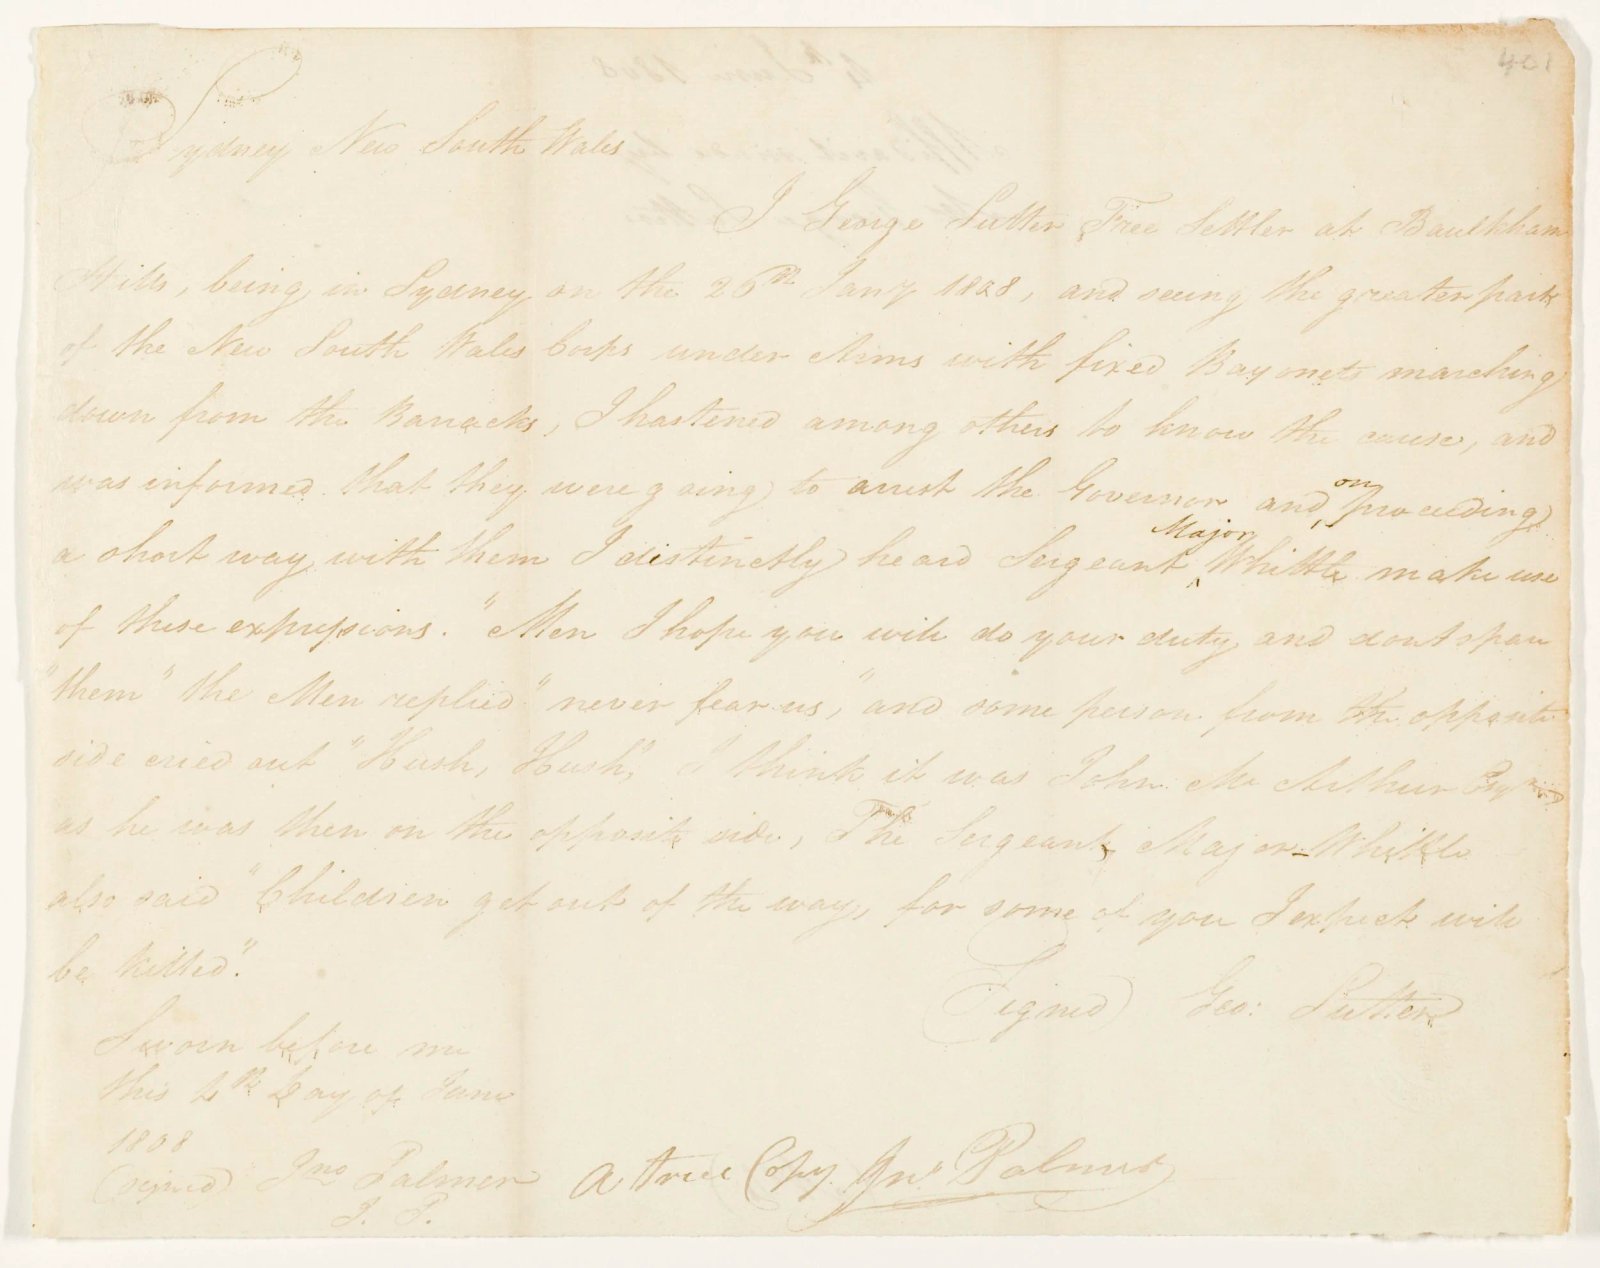 401
Sydney New South Wales
I George Sutter Free Settler at Baulkham
Hills, being in Sydney on the 26th Jany 1808, and seeing the greater part
of the New South Wales Corps under Arms with fixed Bayonets marching
down from the Barracks, I hastened among others to know the cause, and
was informed that they were going to arrest the Governor and on proceeding
a short way with them I distinctly heard Sergeant Major Whittle make use
of these expressions. "Men I hope you will do your duty and dont spare
"them" the Men replied "never fear us," and some person from the opposite
side cried out "Hush, Hush," I think it was John Mc Arthur Esqr
as he was then on the opposite side, The Sergeant Major Whittle
also said "Children get out of the way, for some of you I expect will
be killed".
(Signed) Geo: Sutter
Sworn before me
this 4th Day of June
1808
(signed) Jno Palmer
J. P.
A true Copy. Jno. Palmer